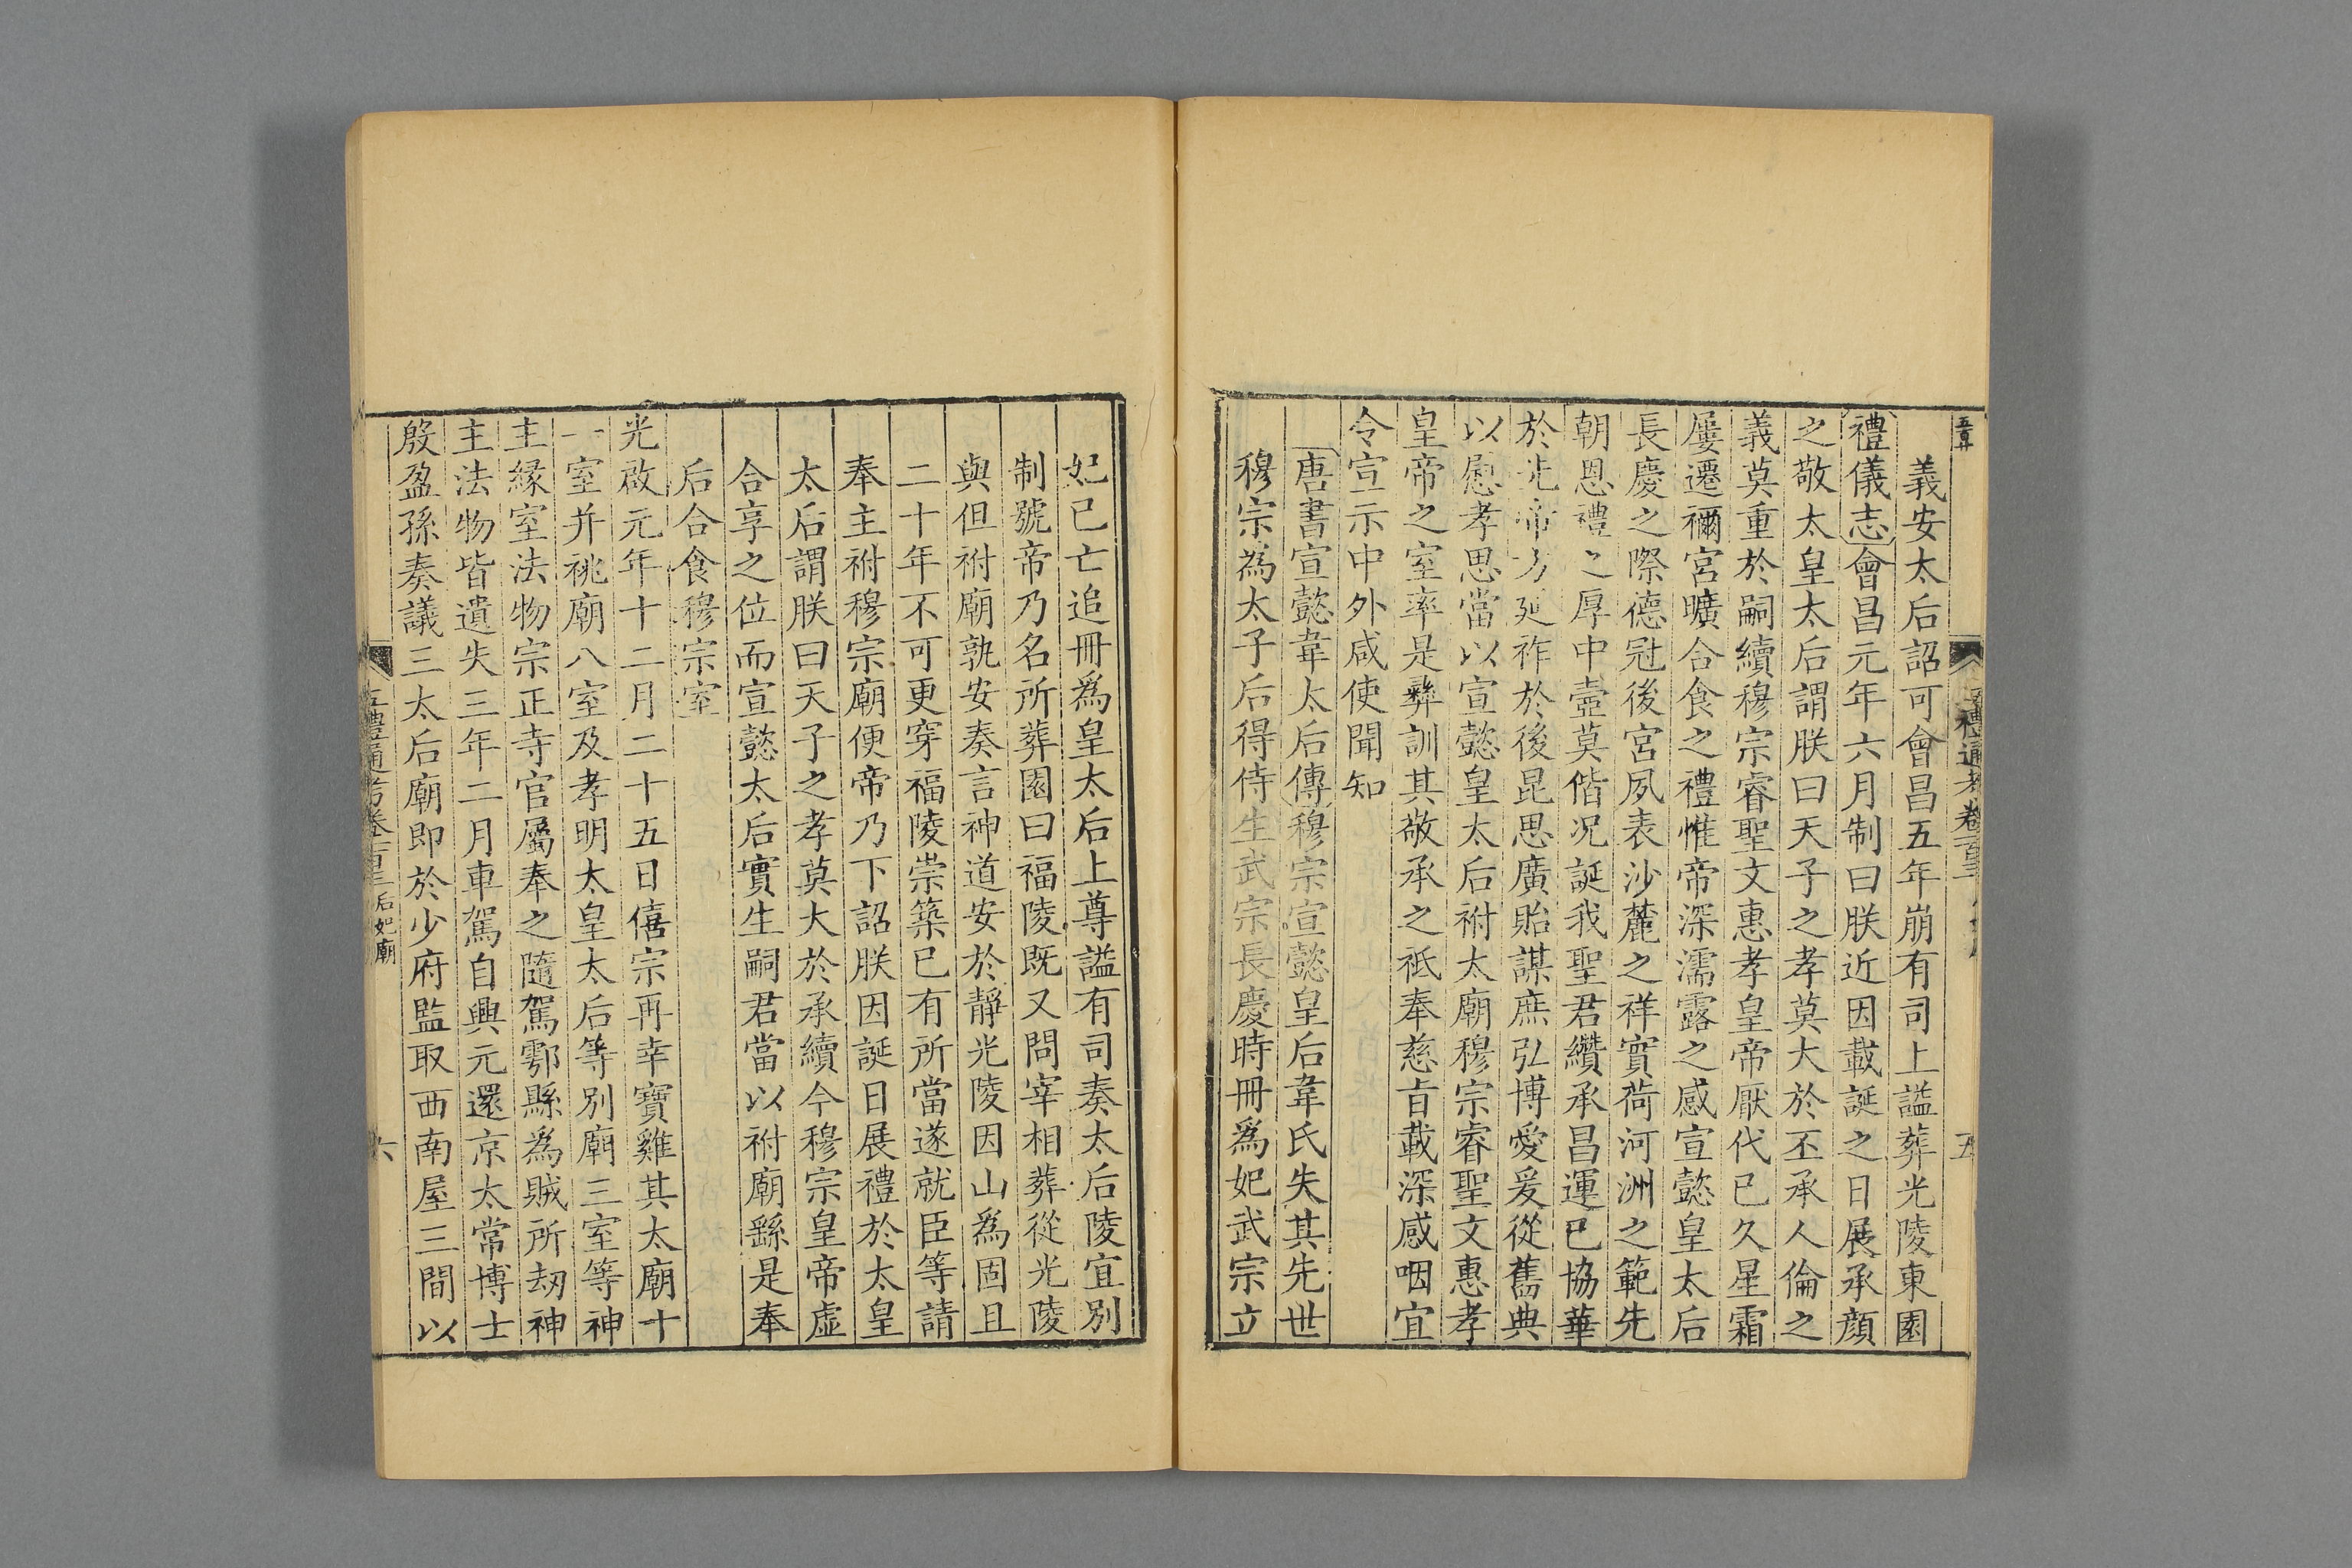 義安太后詔可會昌五年崩有司上謚葬光陵東園
禮儀志會昌元年六月制曰朕近因載誕之日展承顔
之敬太皇太后謂朕曰天子之孝莫大於丕承人倫之
義莫重於嗣續穆宗睿聖文惠孝皇帝厭代已久星霜
屢遷禰宮曠合食之禮惟帝深濡露之感宣懿皇太后
長慶之際德冠後宮夙表沙麓之祥實荷河洲之範先
朝恩禮之厚中壼莫偕況誕我聖君纘承昌運巳協華
於先帝方延祚於後昆思廣貽謀庶弘博愛爰從舊典
以慰孝思當以宣懿皇太后祔太廟穆宗睿聖文惠孝
皇帝之室率是彝訓其敬承之祗奉慈旨載深感咽宜
令宣示中外咸使聞知
唐書宣懿韋太后傳穆宗宣懿皇后韋氏失其先世
穆宗為太子后得侍生武宗長慶時冊爲妃武宗立
妃已亡追冊爲皇太后上尊謚有司奏太后陵宜別
制號帝乃名所葬園曰福陵既又問宰相葬從光陵
與但祔廟孰安奏言神道安於靜光陵因山爲固且
二十年不可更穿福陵崇築已有所當遂就臣等請
奉主祔穆宗廟便帝乃下詔朕因誕日展禮於太皇
太后謂朕曰天子之孝莫大於承續今穆宗皇帝虛
合享之位而宣懿太后實生嗣君當以祔廟繇是奉
后合食穆宗室
光啟元年十二月二十五日僖宗再幸寶雞其太廟十
一室并祧廟八室及孝明太皇太后等別廟三室等神
主緣室法物宗正寺官屬奉之隨駕鄠縣為賊所刼神
主法物皆遺失三年二月車駕自興元還京太常博士
殷盈孫奏議三太后廟即於少府監取西南屋三間以
五禮通考卷一百三 后妃廟
六